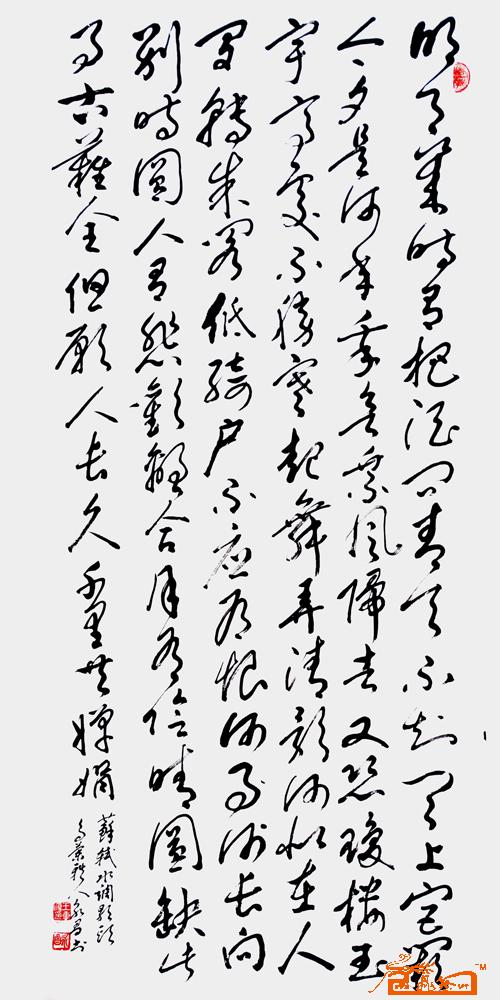 明月幾時有把酒問青天不知天上宫闕
今夕是何年我欲乘風歸去又恐瓊樓玉
宇高處不勝寒起舞弄清影何似在人
間轉朱閣低綺户不應有恨何事偏長向
别時圓人有悲歡離合月有陰晴圓缺此
事古難全但願人長久千里共嬋娟
蘇軾水調歌頭